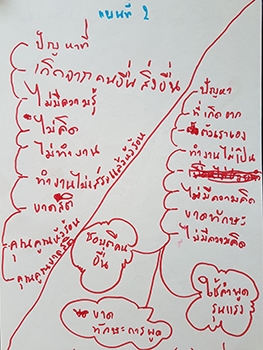 แผนที่ 2
ปัญหาที่
เกิดจากคนอื่น สิ่งอื่น
ไม่มีความรู้
ไม่คิด
ไม่ทำงาน
ทำงานไม่เสร็จ
ขาดสติ
ปัญหา
ที่เกิดจาก
ตัวเราเอง
ทำงานไม่เป็น
ไม่มีความคิด
ขาดทักษะ
ไม่มีความคิด
อื่น
ใช้คำพูด
รุนแรง
ขาด
ทักษะการพูด